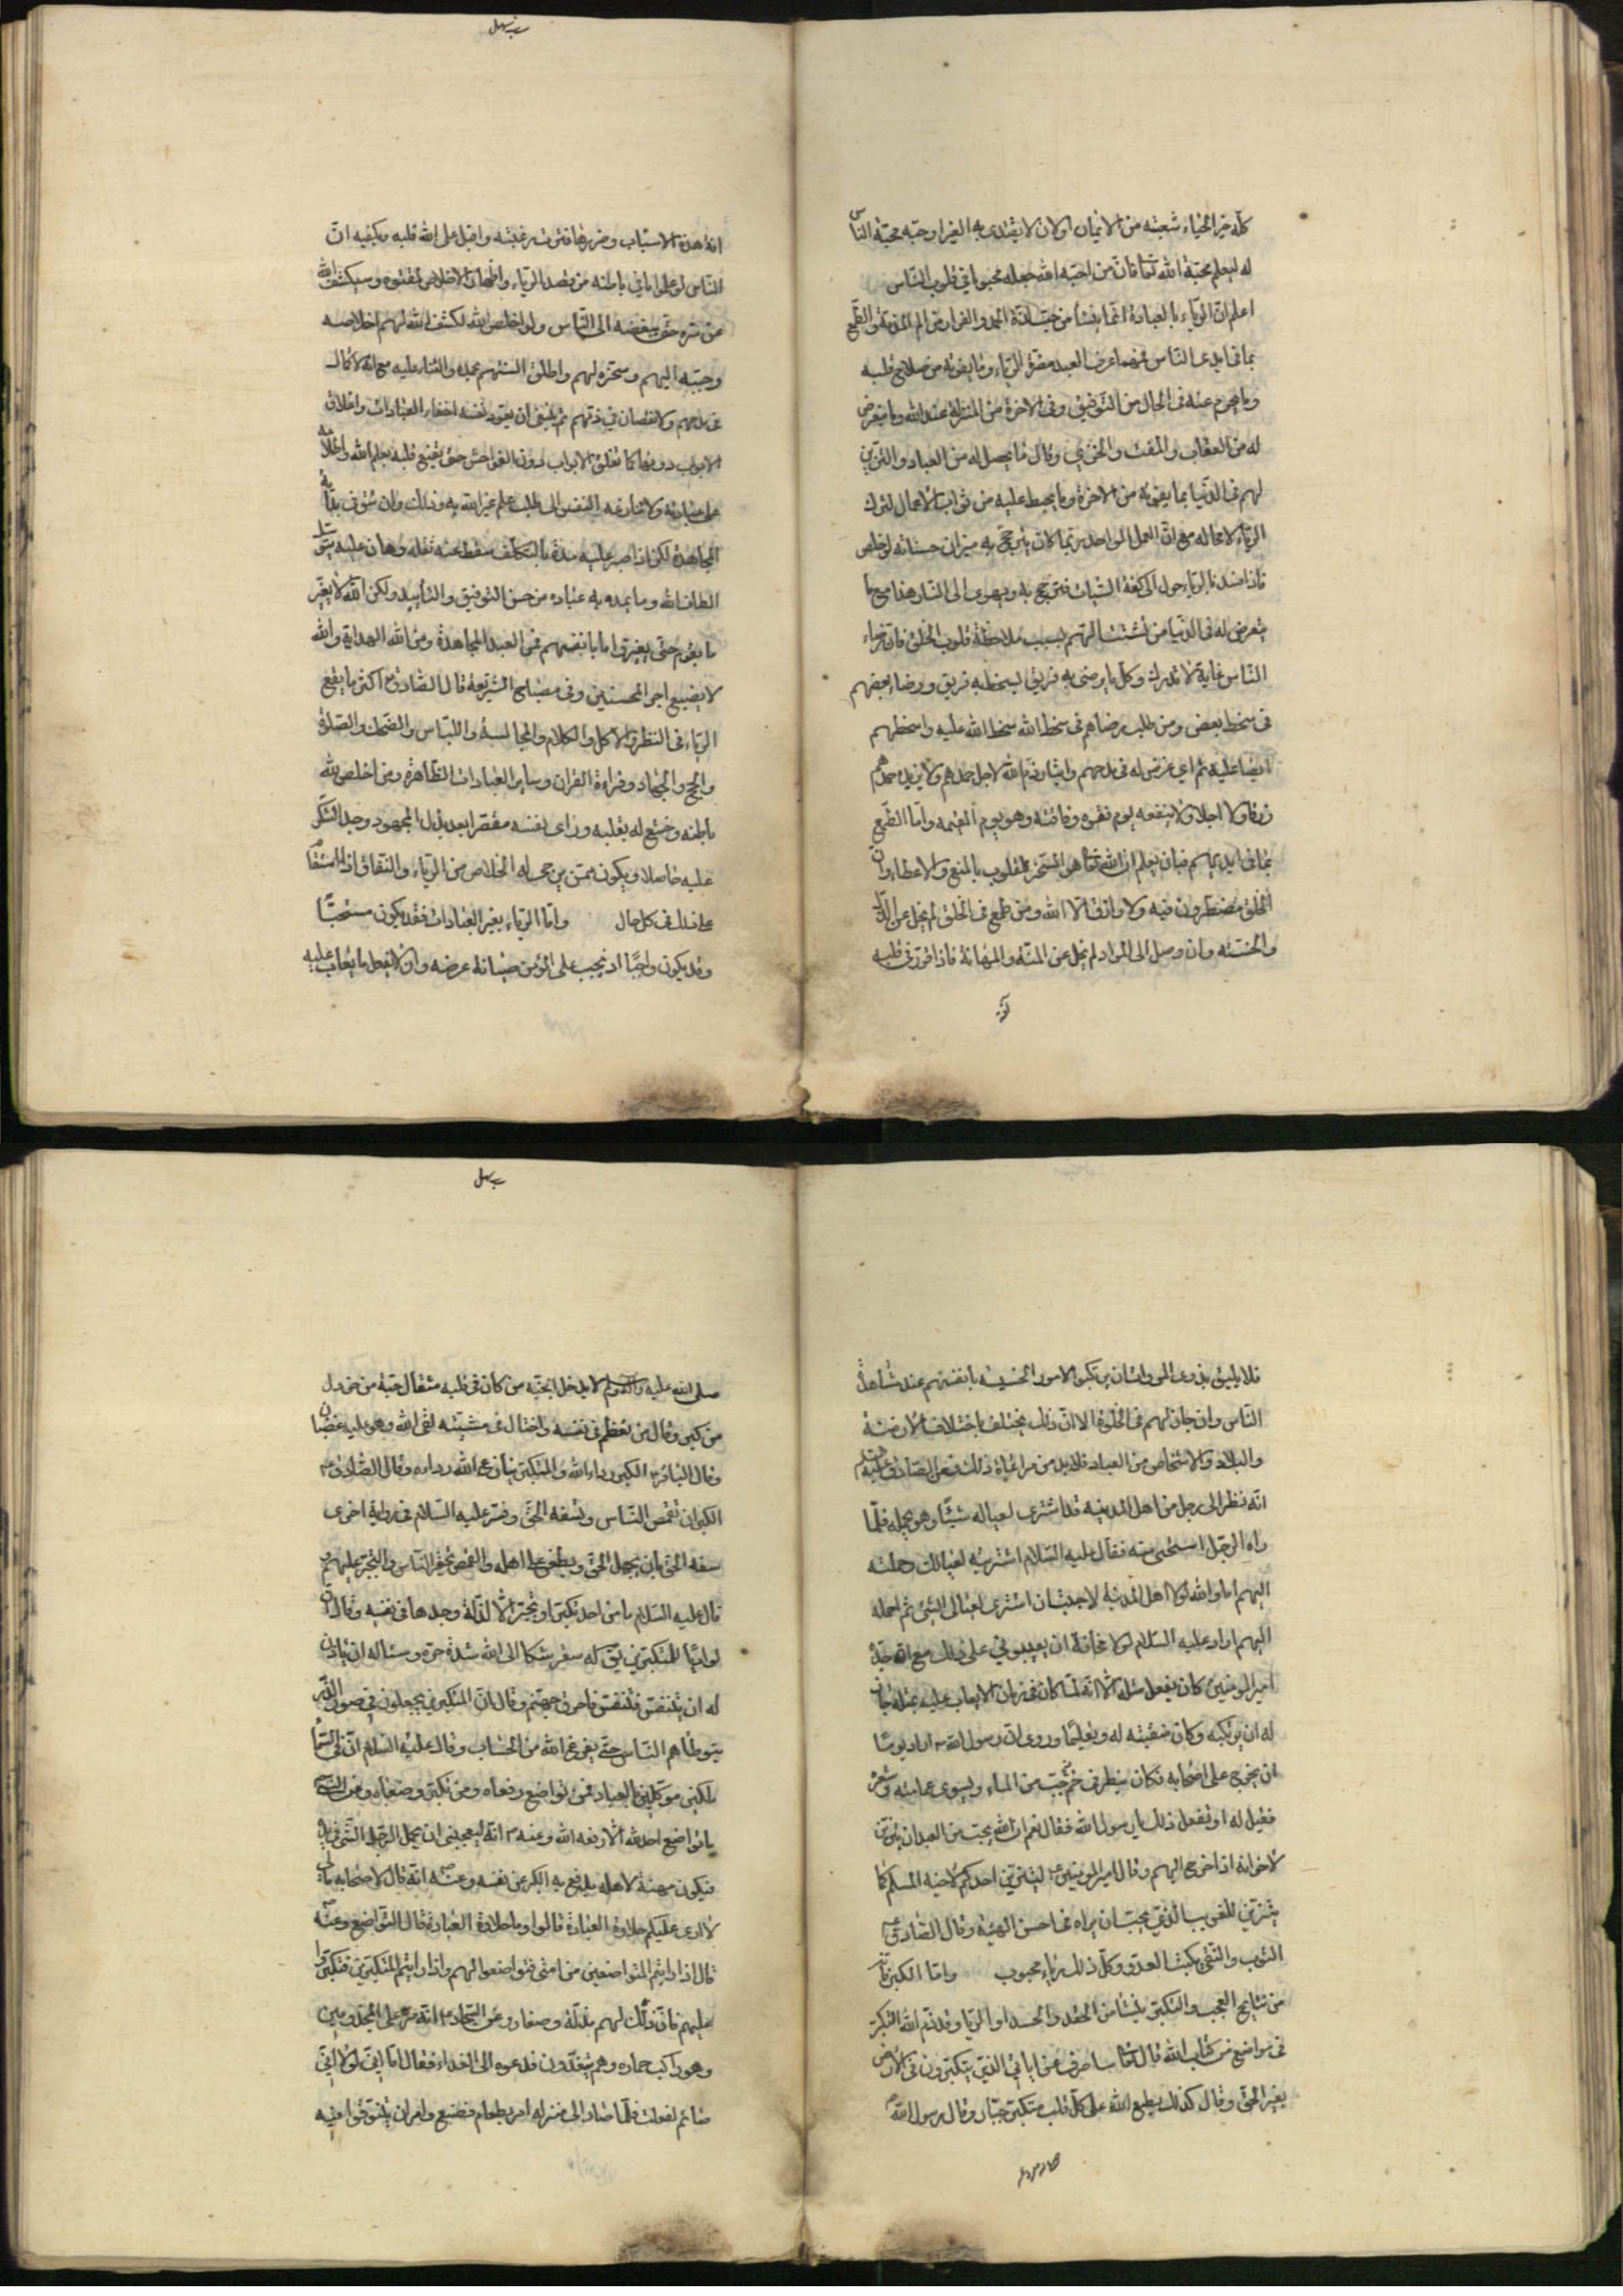 كله خير الحياء شعبته من الايمان او لان لا يقتدى به الغير او حبه محبة الناس
له ليعلم محبة الله تعالى فان من احبه الله جعله محبوبا في قلوب الناس
اعلم ان الرياء بالعبادة انما ينشأ من حب لذة الحمد والفرار من الم الذم والطمع
بما في ايدى الناس فمهما عرف العبد مضرة الرياء وما يفوته من صلاح قلبه
وما يحرم عنه في الحال من التوفيق وفي الاخرة من المنزلة عند الله وما يتعرض
له من العقاب والمقت والخزي وقال ما يحصل له من العباد والتزين
لهم في الدنيا بما يفوته من الاخرة وما يحبط عليه من ثواب الاعمال لترك
الرياء لا محاله مع ان العمل الواحد ربما كان يترجح به ميزان حسناته لو خلص
فاذا فسد بالرياء حول الى كفة السيئات فترجح به ويهوى الى النار هذا مع ما
يتعرض له في الدنيا من تشتت الهم بسبب ملاحظة قلوب الخلق فان رضاء
الناس غاية لا تدرك وكل ما يرضى به فريق ليسخط به فريق ورضا بعضهم
في سخط بعض ومن طلب رضاهم في سخط الله سخط الله عليه واسخطهم
ايضا عليه ثم اي غرض له في مدحهم وايثار ذم الله لاجل حمدهم ولا يزيده حمدهم
رزقا ولا اجلا ولا ينفعه يوم فقره وفاقته وهو يوم القيمه واما الطمع
بما في ايديهم فبان يعلم ان الله تعالى هو المسخر للقلوب بالمنع والاعطاء وان
الخلق مضطرون فيه ولا رازق الا الله ومن طمع في الخلق لم يخل عن الذل
والخسته وان وصل الى المراد لم يخل عن المنة والمهانة فاذا قرر في قلبه
آفة هذه الاسباب وضررها فترت رغبته واقبل على الله قلبه ويكفيه ان
الناس لو علموا ما في باطنه من قصد الرياء واظهار الاخلاص لمقتوه وسيكشف الله
عن سره حتى يبغضه الى الناس ولو اخلص لله لكشف الله لهم اخلاصه
وحببه اليهم وسخره لهم واطلق السنتهم بحمده والثناء عليه مع انه لا كمال
في مدحهم ولا نقصان في ذمهم ثم ينبغي ان يعود نفسه اخفاء العبادات واغلاق
الابواب دونها كما تغلق الابواب دون الفواحش حتى يقنع قلبه بعلم الله واطلاعه
على عبادته ولا تنازعه النفس الى طلب علم غير الله به وذلك وان شق في بداية
المجاهدة لكن اذا صبر عليه مدة بالتكلف سقط عنه ثقله وهان عليه بتواصل
الطاف الله وما يمده به عباده من حسن التوفيق والتأييد ولكن الله لا يغير
ما بقوم حتى يغيروا ما بانفسهم فمن العبد المجاهدة ومن الله الهداية والله
لا يضيع اجر المحسنين وفي مصباح الشريعة قال الصادق ع اكثر ما يقع
الرياء في النظر والاكل والكلام والمجالسة واللباس والضحك والصلوة
والحج والجهاد وقراءة القران وساير العبادات الظاهرة ومن اخلص لله
باطنه وخشع له بقلبه وراى نفسه مقصرا بعد بذل المجهود وجد الشكر
عليه حاصلا ويكون ممن يرجى له الخلاص من الرياء والنفاق اذا استقام
على ذلك في كل حال واما الرياء بغير العبادات فقد يكون مستحبا
وقد يكون واجبا اذ يجب على المؤمن صيانة عرضه وان لا يفعل ما يعاب عليه
فلا يليق بذوى المروات ان يرتكبوا الامور الخسيسة بانفسهم عند مشاهدة
الناس وان جاز لهم في الخلوة الا ان ذلك يختلف باختلاف الازمنة
والبلاد والاشخاص من العباد فلا بد من مراعاة ذلك فعن الصادق عليه السلم
انه نظر الى رجل من اهل المدينه قد اشترى لعياله شيئا وهو يحمله فلما
راه الرجل استحيى منه فقال عليه السلام اشتريته لعيالك وحملته
اليهم اما والله لولا اهل المدينة لاحببت ان اشترى لعيالى الشئ ثم احمله
اليهم اراد عليه السلام لولا مخافة ان يعيبوني على ذلك مع ان جده
امير المومنين كان يفعل مثله الا انه لما كان في زمان لا يعاب عليه بمثله جاز
له ان يرتكبه وكان منقبته له وتعليما وروى ان رسول الله ص اراد يوما
ان يخرج على اصحابه فكان ينظر في حب من الماء ويسوى عمامته وشعره
فقيل له او تفعل ذلك يا رسول الله فقال نعم ان الله يحب من العبد ان يتزين
لاخوانه اذا خرج اليهم وقال امير المومنين ع ليتزين احدكم لاخيه المسلم كما
يتزين للغريب الذي يحب ان يراه في احسن الهيئة وقال الصادق ع
الثوب والنقي يكبت العدو وكل ذلك رياء محبوب واما الكبر فانه
من نتايج العجب والتكبر ينشا من الحقد والحسد او الريا وقد ذم الله التكبر
في مواضع من كتاب الله قال تعالى ساصرف عن اياتي الذين يتكبرون في الارض
بغير الحق وقال كذلك يطبع الله على كل قلب متكبر جبار وقال رسول الله
صلى الله عليه واله وسلم لا يدخل الجنة من كان في قلبه مثقال حبة من خردل
من كبر وقال من تعظم في نفسه واختال في مشيته لقى الله وهو عليه غضبان
وقال الباقر ع الكبر رداء الله والمتكبر ينازع الله رداءه وقال الصادق ع
الكبر ان تغمص الناس وتسفه الحق وفسر عليه السلام في رواية اخرى
سفه الحق بان يجهل الحق ويطعن على اهله والغمص بتحقير الناس والتجبر عليهم و
قال عليه السلام ما من احد تكبر او تجبر الا لذلة وجدها في نفسه وقال ان
لواديا للمتكبرين يق له سقر شكا الى الله شدة حره وساله ان ياذن
له ان يتنفس فتنفس فاحرق جهنم وقال ان المتكبرين يجعلون في صور الذر
يتوطاهم الناس حتى يفرغ الله من الحساب وقال عليه السلام ان في السماء
ملكين موكلين بالعباد فمن تواضع رفعاه ومن تكبر وضعاه وعن النبي
ما تواضع احد لله الا رفعه الله وعنه ص انه ليعجبنى ان يحمل الرجل الشئ في يده
فيكون مهنة لاهله يدفع به الكبر عن نفسه وعنه انه قال لاصحابه ما لي
لا ارى عليكم حلاوة العبادة قالوا وما حلاوة العبادة قال التواضع وعنه
قال اذا رايتم المتواضعين من امتى فتواضعوا لهم واذا رايتم المتكبرين فتكبروا
عليهم فان ذلك لهم مذلة وصغار وعن السجاد ع انه مر على المجذومين
وهو راكب حماره وهم يتغدون فدعوه الى الغداء فقال اما انى لولا انى
صائم لفعلت فلما صار الى منزله امر بطعام فصنع وامر ان يتنوقوا فيه